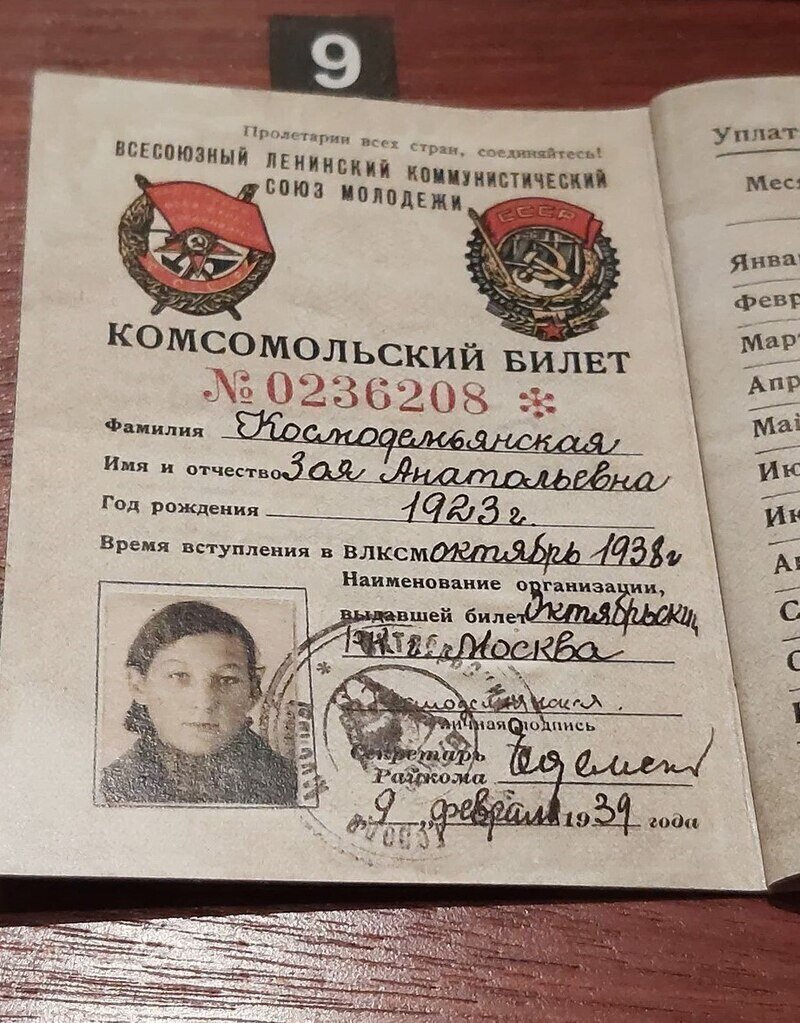 9
Пролетарии всех стран, соединяйтесь!
ВСЕСОЮЗНЫЙ ЛЕНИНСКИЙ КОММУНИСТИЧЕСКИЙ
СОЮЗ МОЛОДЕЖИ
СССР
КОМСОМОЛЬСКИЙ БИЛЕТ
№ 0236208
Фамилия Космодемьянская
Имя и отчество Зоя Анатольевна
Год рождения 1923 г.
Время вступления в ВЛКСМ октябрь 1938 г
Наименование организации,
выдавшей билет Октябрьский
РК г. Москва
личная подпись
Секретарь
Райкома
„9„ февраля 1939 года
Уплат
Меся
Январ
Февр
Март
Апр
Май
Ию
Ию